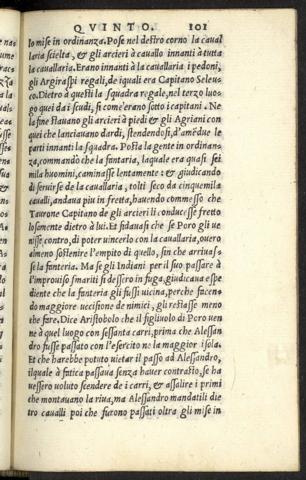 QVINTO. 101
lo mise in ordinanza. Pose nel destro corno la caual
laria scielta, & gli arcieri à cauallo innanti à tutta
la cauallaria. Erano innanti à la cauallaria i pedoni,
gli Argiraspi regali, de iquali era Capitano Seleu-
co. Dietro a questi la squadra regale, nel terzo luo-
go quei da i scudi, si come erano sotto i capitani. Ne
la fine stauano gli arcieri à piedi & gli Agriani con
quei che lanciauano dardi, stendendosi, d'amẽdue le
parti innanti la squadra. Posta la gente in ordinan-
za, commandò che la fantaria, laquale era quasi sei
mila huomini, caminasse lentamente: & giudicando
di seruirse de la cauallaria, tolti seco da cinquemila
caualli, andaua piu in fretta, hauendo commesso che
Taurone Capitano de gli arcieri li conducesse fretto
losamente dietro à lui. Et fidauasi che se Poro gli ue
nisse contro, di poter uincerlo con la cauallaria, ouero
almeno sostenire l'empito di quello, sin che arriuas-
se la fanteria. Ma se gli Indiani per il suo passare à
l'improuiso smariti si dessero in fuga, giudicaua espe
diente che la fanteria gli fussi uicina, perche facen-
do maggiore uccisione de nimici, gli restasse meno
che fare. Dice Aristobolo che il figliuolo di Poro uen
ne à quel luogo con sessanta carri, prima che Alessan
dro fusse passato con l'esercito ne la maggior isola.
Et che harebbe potuto uietar il passo ad Alessandro,
ilquale à fatica passaua senza hauer contrasto, se ha
uessero uoluto scendere de i carri, & assalire i primi
che montauano la riua, ma Alessandro mandatili die
tro caualli poi che furono passati oltra gli mise in